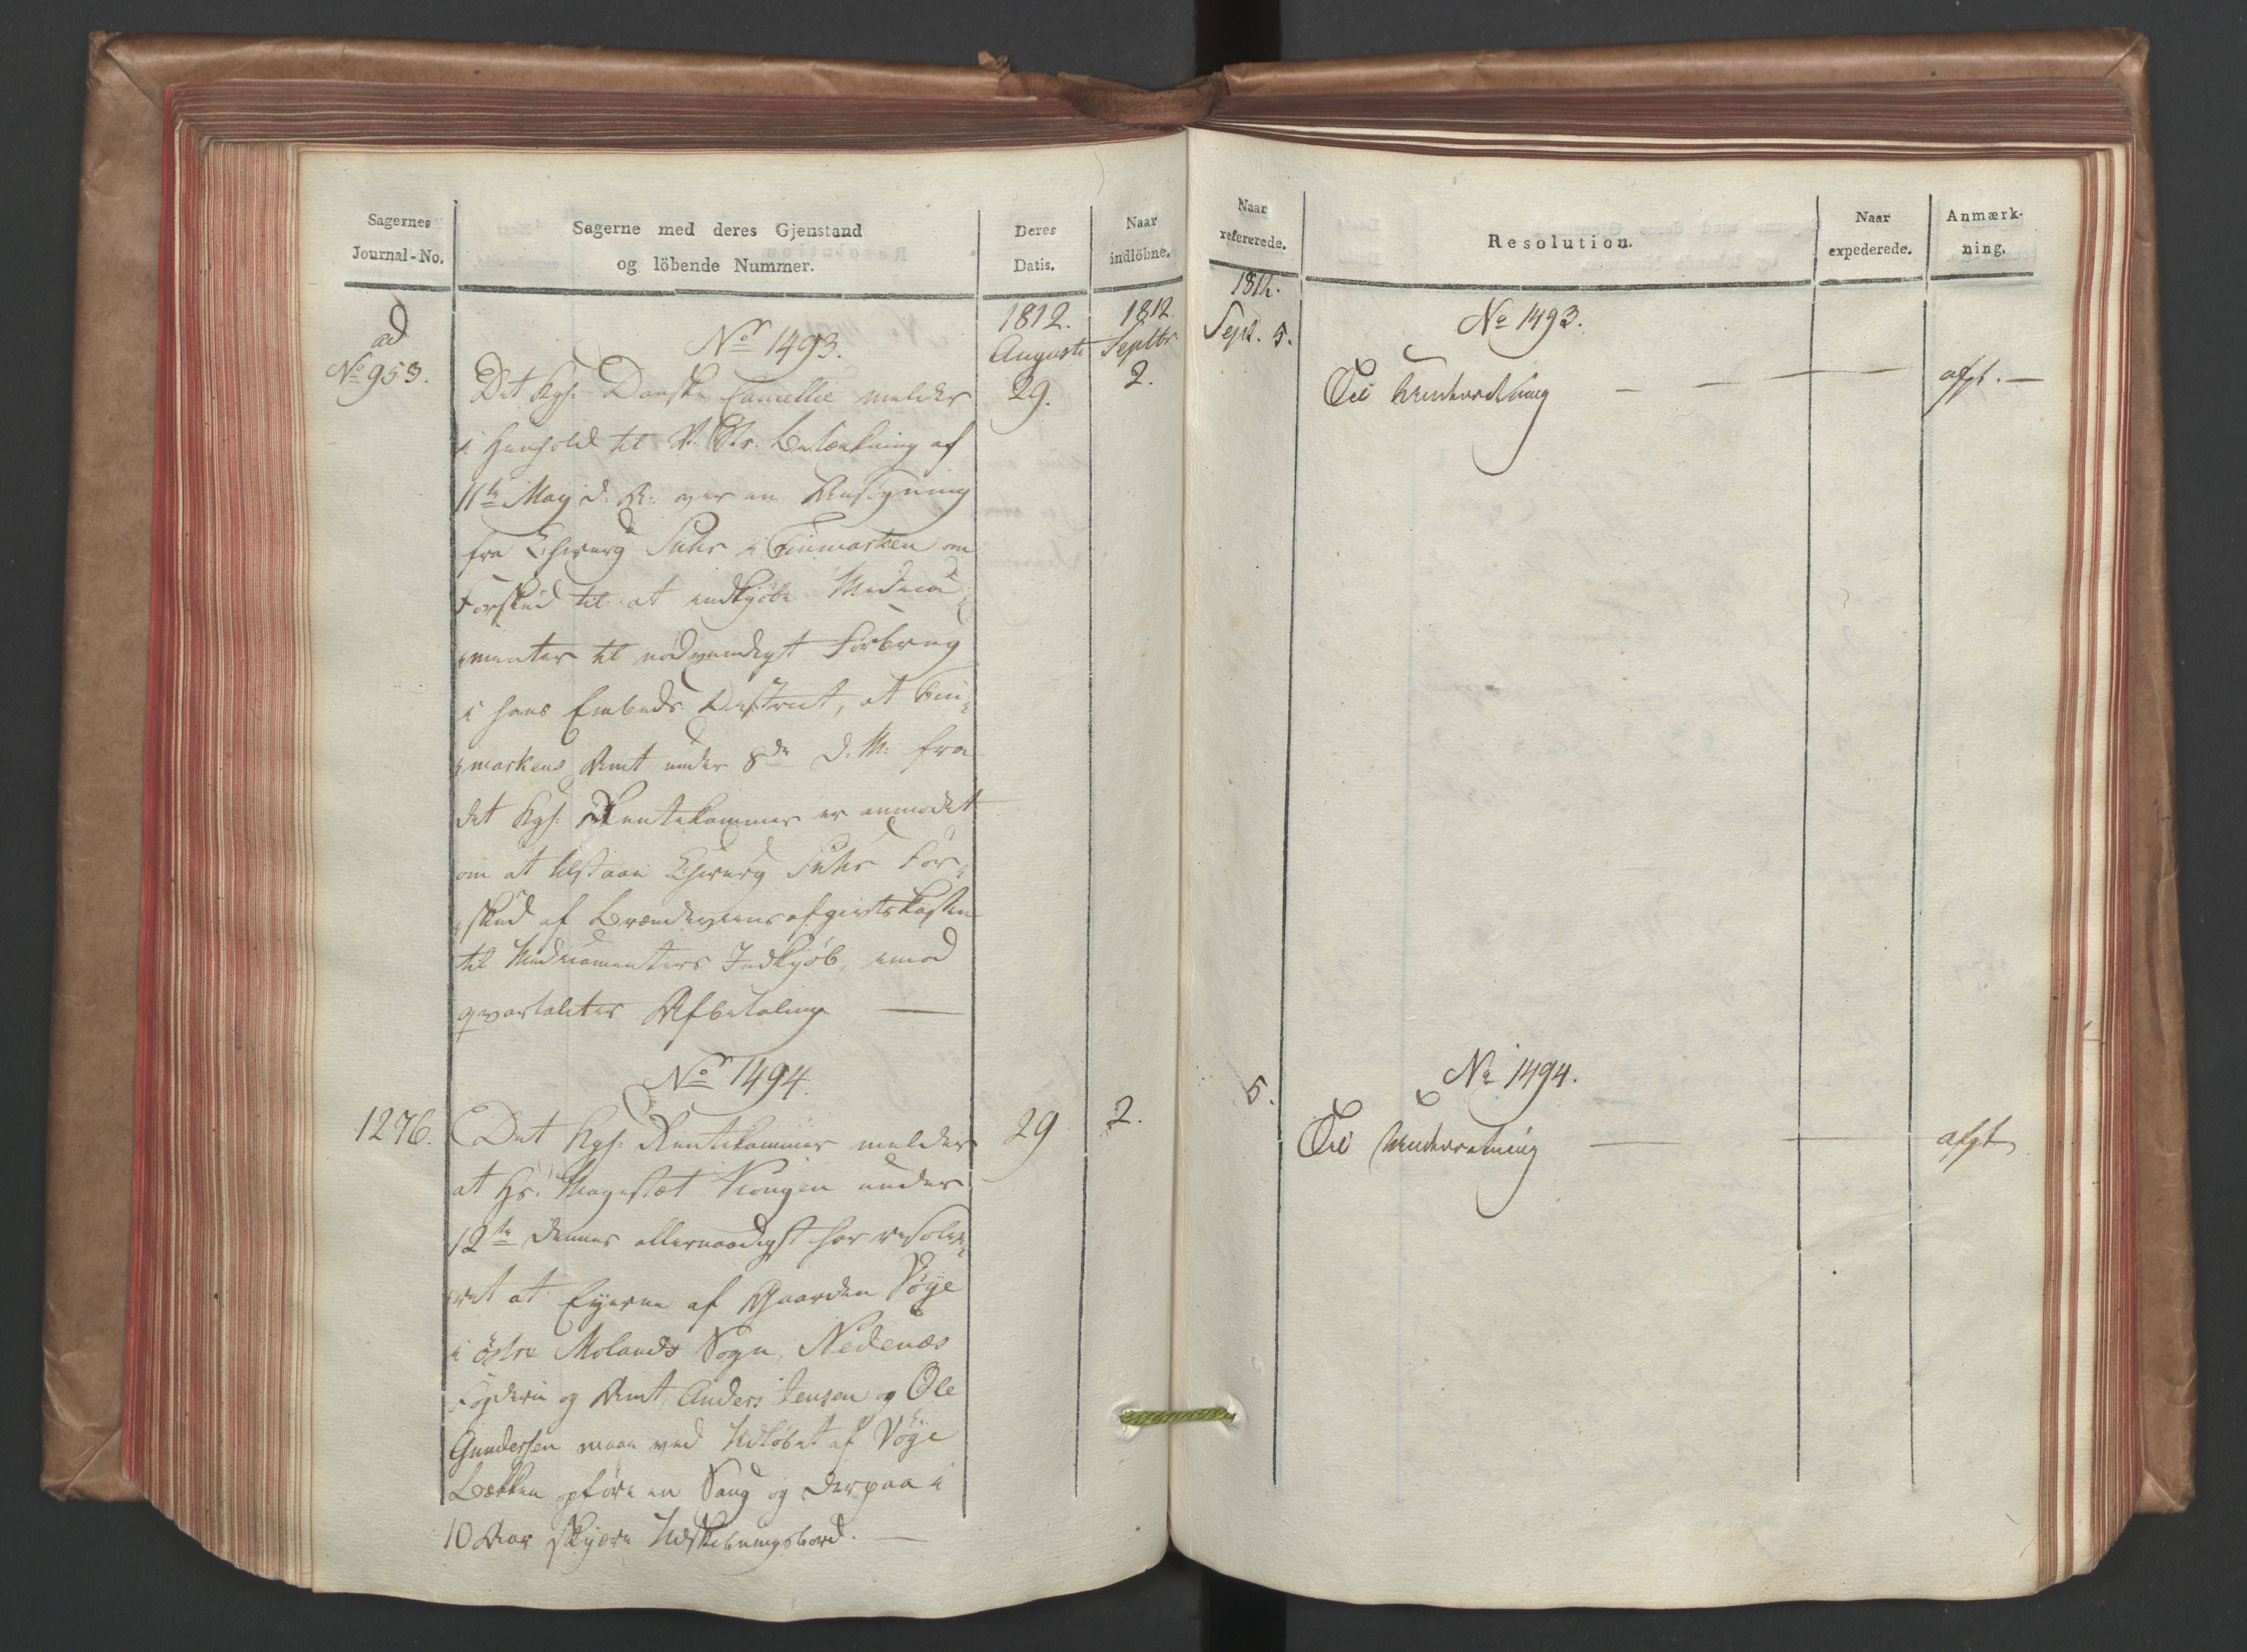 Sagernes
Journal-No.
Sagerne med deres Gjenstand
og löbende Nummer.
Deres
Datis.
Naar
indlöbne.
ad
No 953.
1812.
Augusti
29.
1812.
Septbr
2.
No 1493.
Det Kgl. Danske Cancellie melder
i Henhold til R. Str. Betænkning af
11te May d. A. over en Ansøgning
fra Chirurg Suhr i Finmarken om
Forskud til at indkjøbe Medica-
menter til nødvendigt Forbrug
i hans Embeds District, at Fin-
markens Amt under 8de d. M. fra
det Kgl. Rentekammer er anmodet
om at tilstaae Chirurg Suhr For-
skud af Brændeviinsafgivtskassen
til Medicamenters Indkjøb, imod
qvartaliter Afbetaling —
No 1494.
1276.
Det Kgl. Rentekammer melder
29
2.
at Hs. Majestæt Kongen under
12te dennes allernaadigst har resolve-
ret at Eyerne af Gaarden Vöye
i östre Molands Sogn, Nedenæs
Fogderie og Amt, Anders Jensen og Ole
Gundersen maae ved Udløbet af Vöye
Bækken opføre en Saug og derpaa i
10 Aar skjære Udskibningsbord. —
Naar
refererede.
Resolution.
Naar
expederede.
Anmærk-
ning.
1812.
Sept. 5.
No 1493.
Til Underretning — — — —
afgt. —
No 1494.
5.
Til Underretning — —
afgt